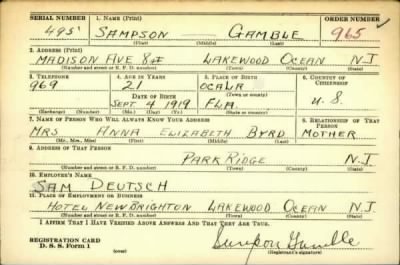 SERIAL NUMBER 1. NAME (Print) ORDER NUMBER
495 SAMPSON GAMBLE 965
(First) (Middle) (Last)
2. ADDRESS (Print)
MADISON AVE LAKEWOOD OCEAN N.J
(Number and street or R. F. D. number) (Town) (County) (State)
3. TELEPHONE 4. AGE IN YEARS 5. PLACE OF BIRTH 6. COUNTRY OF CITIZENSHIP
969 21 OCALA U.S.
DATE OF BIRTH (Town or county)
SEPT 4 1919 FLA
(Exchange) (Number) (Mo.) (Day) (Yr.) (State or country)
7. NAME OF PERSON WHO WILL ALWAYS KNOW YOUR ADDRESS 8. RELATIONSHIP OF THAT PERSON
MRS ANNA ELIZABETH BYRD MOTHER
(Mr., Mrs., Miss) (First) (Middle) (Last)
9. ADDRESS OF THAT PERSON
PARK RIDGE N.J
(Number and street or R. F. D. number) (Town) (County) (State)
10. EMPLOYER'S NAME
SAM DEUTSCH
11. PLACE OF EMPLOYMENT OR BUSINESS
HOTEL NEW BRIGHTON LAKEWOOD OCEAN N.J
(Number and street or R. F. D. number) (Town) (County) (State)
I AFFIRM THAT I HAVE VERIFIED ABOVE ANSWERS AND THAT THEY ARE TRUE.
REGISTRATION CARD
D. S. S. Form 1 (over) Sampson Gamble
(Registrant's signature)